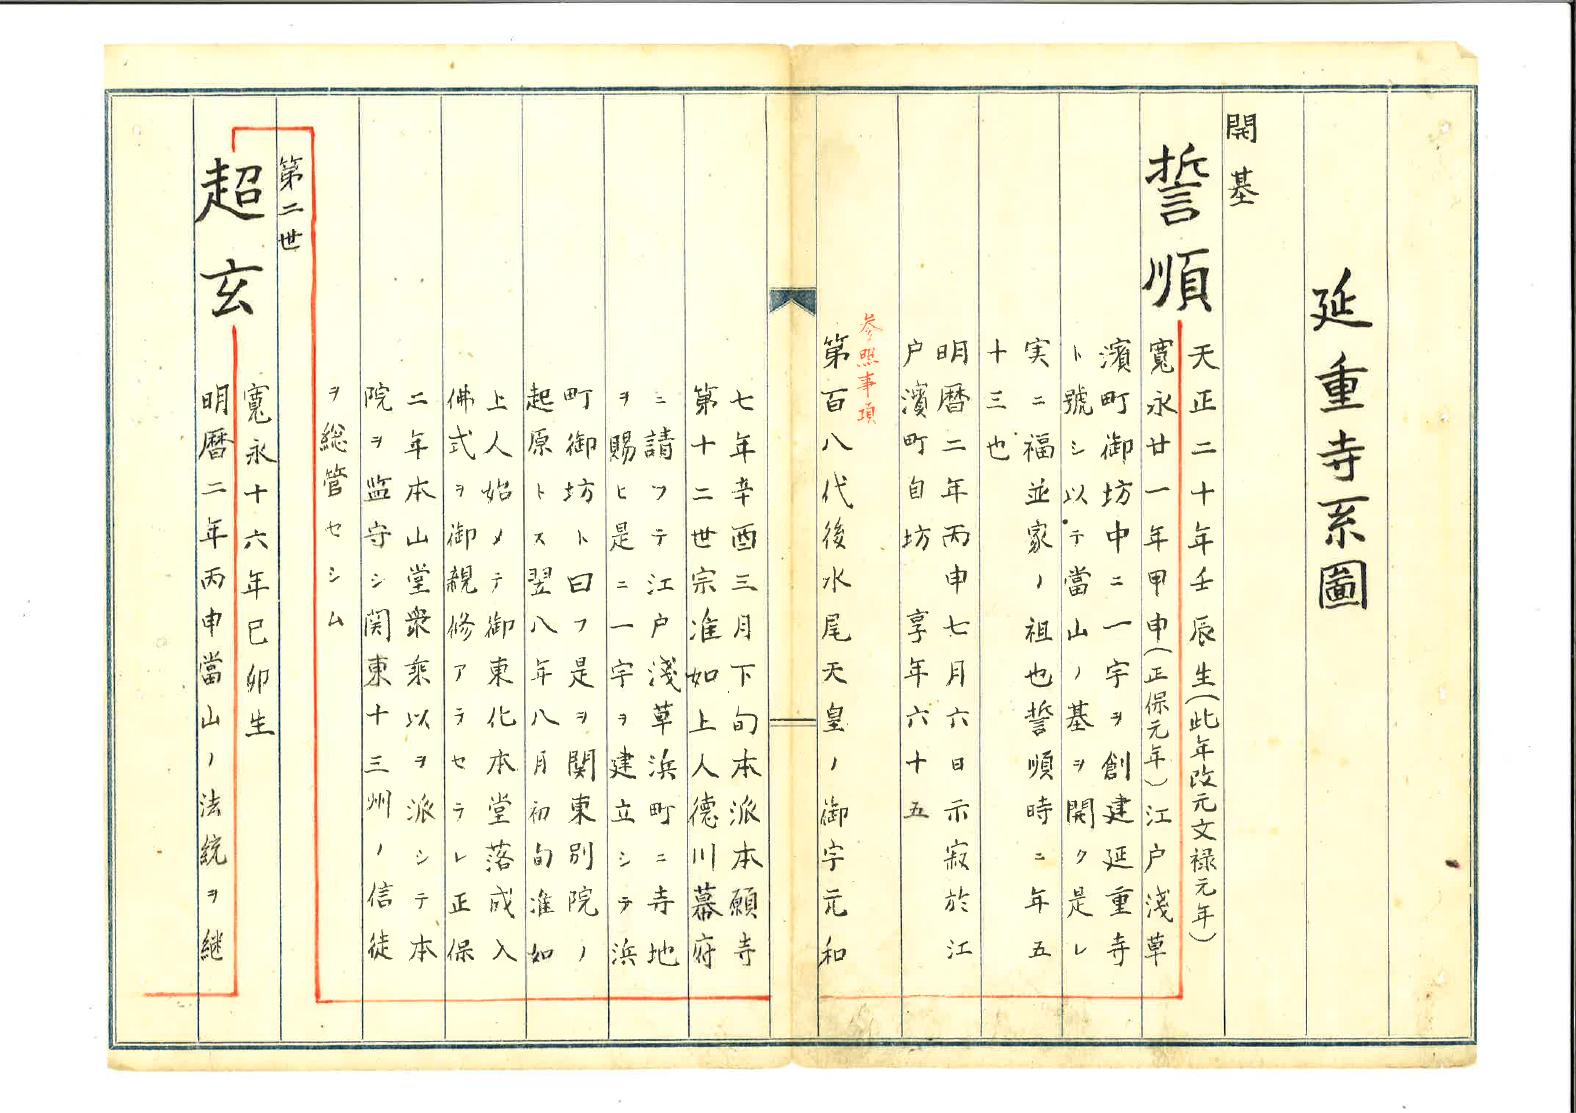 延重寺系圖
開基
誓順
天正二十年壬辰生(此年改元文禄元年)
寛永廿一年甲申(正保元年)江戸淺草
濱町御坊中ニ一宇ヲ創建延重寺
ト號シ以テ當山ノ基ヲ開ク是レ
実ニ福並家ノ祖也誓順時ニ年五
十三也
明暦二年丙申七月六日示寂於江
戸濱町自坊 享年六十五
参照事項
第百八代後水尾天皇ノ御宇元和
七年辛酉三月下旬本派本願寺
第十二世宗准如上人德川幕府
ニ請フテ江戸淺草浜町ニ寺地
ヲ賜ヒ是ニ一宇ヲ建立シテ浜
町御坊ト曰フ是ヲ関東別院ノ
起原トス翌八年八月初旬准如
上人始メテ御東化本堂落成入
佛式ヲ御親修アラセラレ正保
二年本山堂衆乘以ヲ派シテ本
院ヲ監守シ関東十三州ノ信徒
ヲ総管セシム
第二世
超玄
寛永十六年己卯生
明暦二年丙申當山ノ法統ヲ継